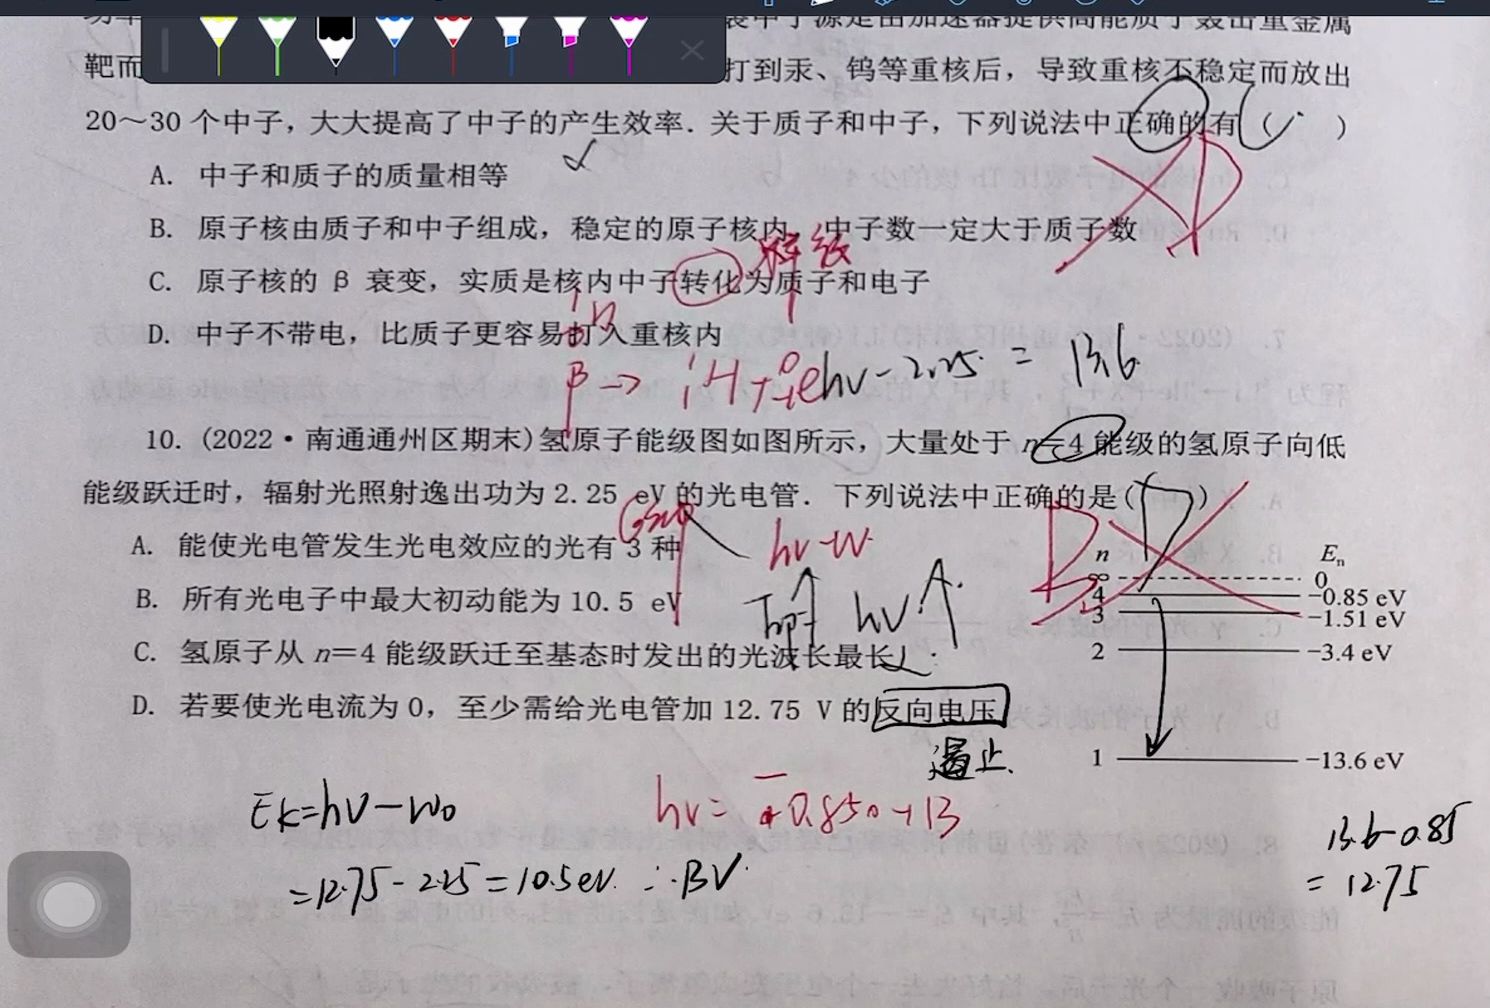 装中子源是由加速器提供高能质子轰击重金属
靶而
打到汞、钨等重核后，导致重核不稳定而放出
20～30 个中子，大大提高了中子的产生效率．关于质子和中子，下列说法中正确的有（ ）
A. 中子和质子的质量相等
B. 原子核由质子和中子组成，稳定的原子核内，中子数一定大于质子数
C. 原子核的 β 衰变，实质是核内中子转化为质子和电子
D. 中子不带电，比质子更容易打入重核内
hν－2.25 = 13.6
10. (2022·南通通州区期末)氢原子能级图如图所示，大量处于 n=4 能级的氢原子向低
能级跃迁时，辐射光照射逸出功为 2.25 eV 的光电管．下列说法中正确的是( D )
A. 能使光电管发生光电效应的光有 3 种
hν-W
B. 所有光电子中最大初动能为 10.5 eV
hν↑
C. 氢原子从 n=4 能级跃迁至基态时发出的光波长最长
D. 若要使光电流为 0，至少需给光电管加 12.75 V 的反向电压
遏止
n Eₙ
∞ 0
4 −0.85 eV
3 −1.51 eV
2 −3.4 eV
1 −13.6 eV
Ek=hν－W₀
=12.75－2.25=10.5eV ∴B√
13.6-0.85
= 12.75